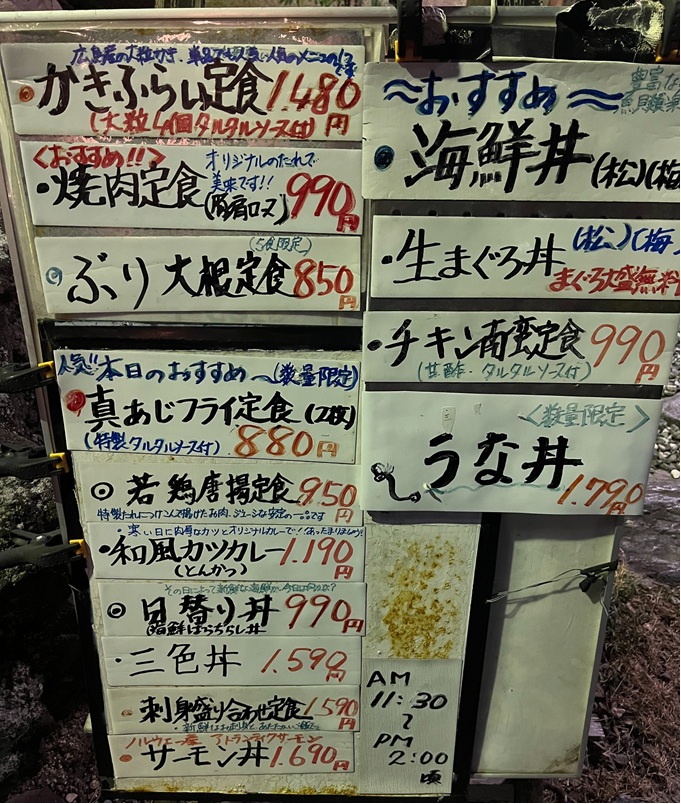 広島産の大粒かき、単品でも人気
がきふらい定食 1.480円
(大粒4個タルタルソース付)
<おすすめ!!>
オリジナルのたれで
美味です!!
・焼肉定食(豚肩ロース) 990円
(5食限定)
ぶり大根定食 850円
人気!!本日のおすすめ〜(数量限定)
真あじフライ定食(2枚)
(特製タルタルソース付) 880円
若鶏唐揚定食 950円
特製たれにつけこんで揚げたお肉、ジューシーな安定の一品です
・寒い日に肉厚なカツとオリジナルカレーで!!あったまりましょう!
・和風カツカレー 1.190円
(とんかつ)
日替り丼 990円
海鮮ばらちらし丼
・三色丼 1.590円
刺身盛り合わせ定食 1.590円
ノルウェー産 アトランティックサーモン
サーモン丼 1.690円
≈おすすめ≈
豊富な
海鮮丼(松)(梅
・生まぐろ丼 (松)(梅
まぐろ大盛無料
・チキン南蛮定食 990円
(甘酢・タルタルソース付)
<数量限定>
うな丼 1.790円
AM
11:30
〜
PM
2:00
頃